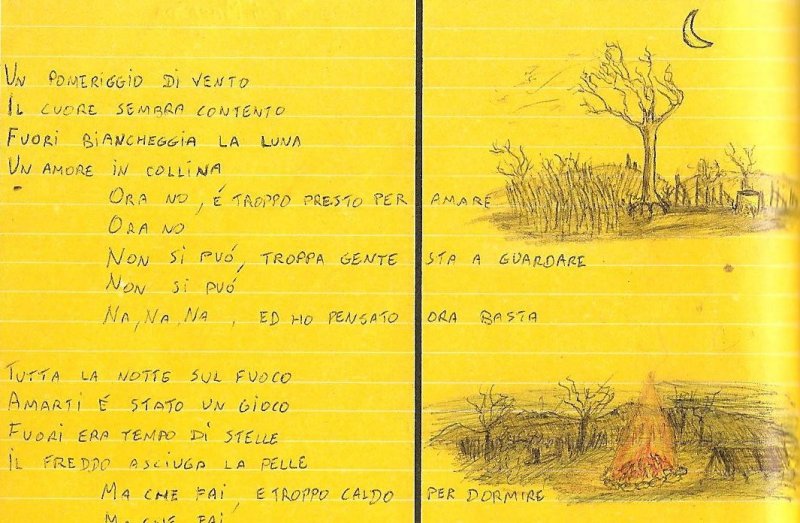 UN POMERIGGIO DI VENTO
IL CUORE SEMBRA CONTENTO
FUORI BIANCHEGGIA LA LUNA
UN AMORE IN COLLINA
ORA NO, É TROPPO PRESTO PER AMARE
ORA NO
NON SI PUÓ, TROPPA GENTE STA A GUARDARE
NON SI PUÓ
NA, NA, NA, ED HO PENSATO ORA BASTA
TUTTA LA NOTTE SUL FUOCO
AMARTI É STATO UN GIOCO
FUORI ERA TEMPO DI STELLE
IL FREDDO ASCIUGA LA PELLE
MA CHE FAI, E TROPPO CALDO PER DORMIRE
MA CHE FAI